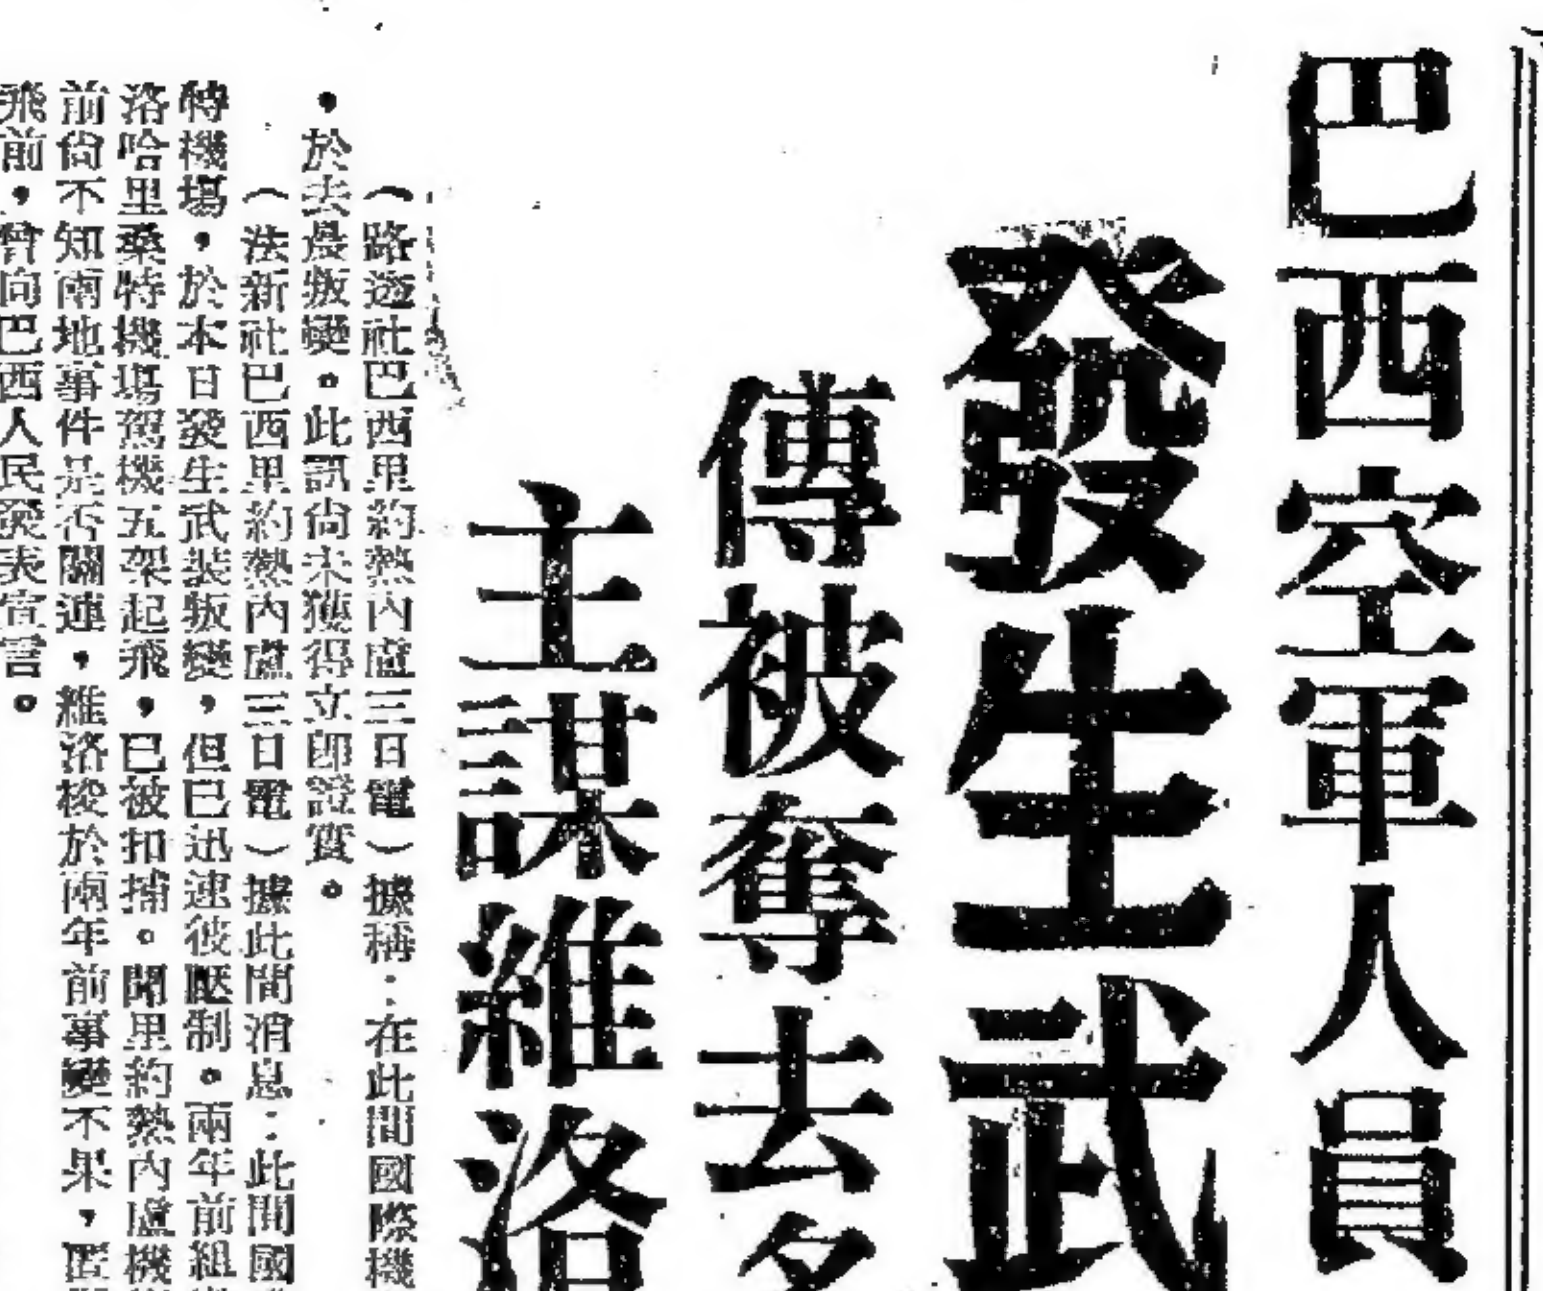 巴西空軍人員
發生武
傳被奪去多
主謀維洛
（路透社巴西里約熱內盧三日電）據稱：在此間國際機
，於去晨叛變。此訊尚未獲得立即證實。
（法新社巴西里約熱內盧三日電）據此間消息：此間國
特機場，於本日發生武裝叛變，但已迅速彼壓制。兩年前組
洛哈里桑特機場駕機五架起飛，已被扣捕。聞里約熱內盧機
前尚不知兩地事件是否關連，維洛梭於兩年前事變不果，匿
飛前，曾向巴西人民發表宣言。